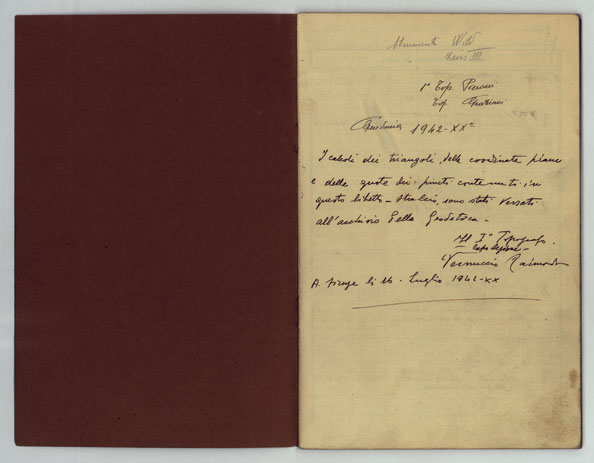 Strumento Wild
1° Top. Pieroni
Top.
1942-XX°
I calcoli dei triangoli, delle coordinate piane
e delle quote dei punti contenuti in
questo libretto - stralcio, sono stati versati
all'archivio della Geodetica -
Il I° Topografo
Capo Sezione -
Vernuccio Raimondo
A Firenze li 16 - Luglio 1942-XX